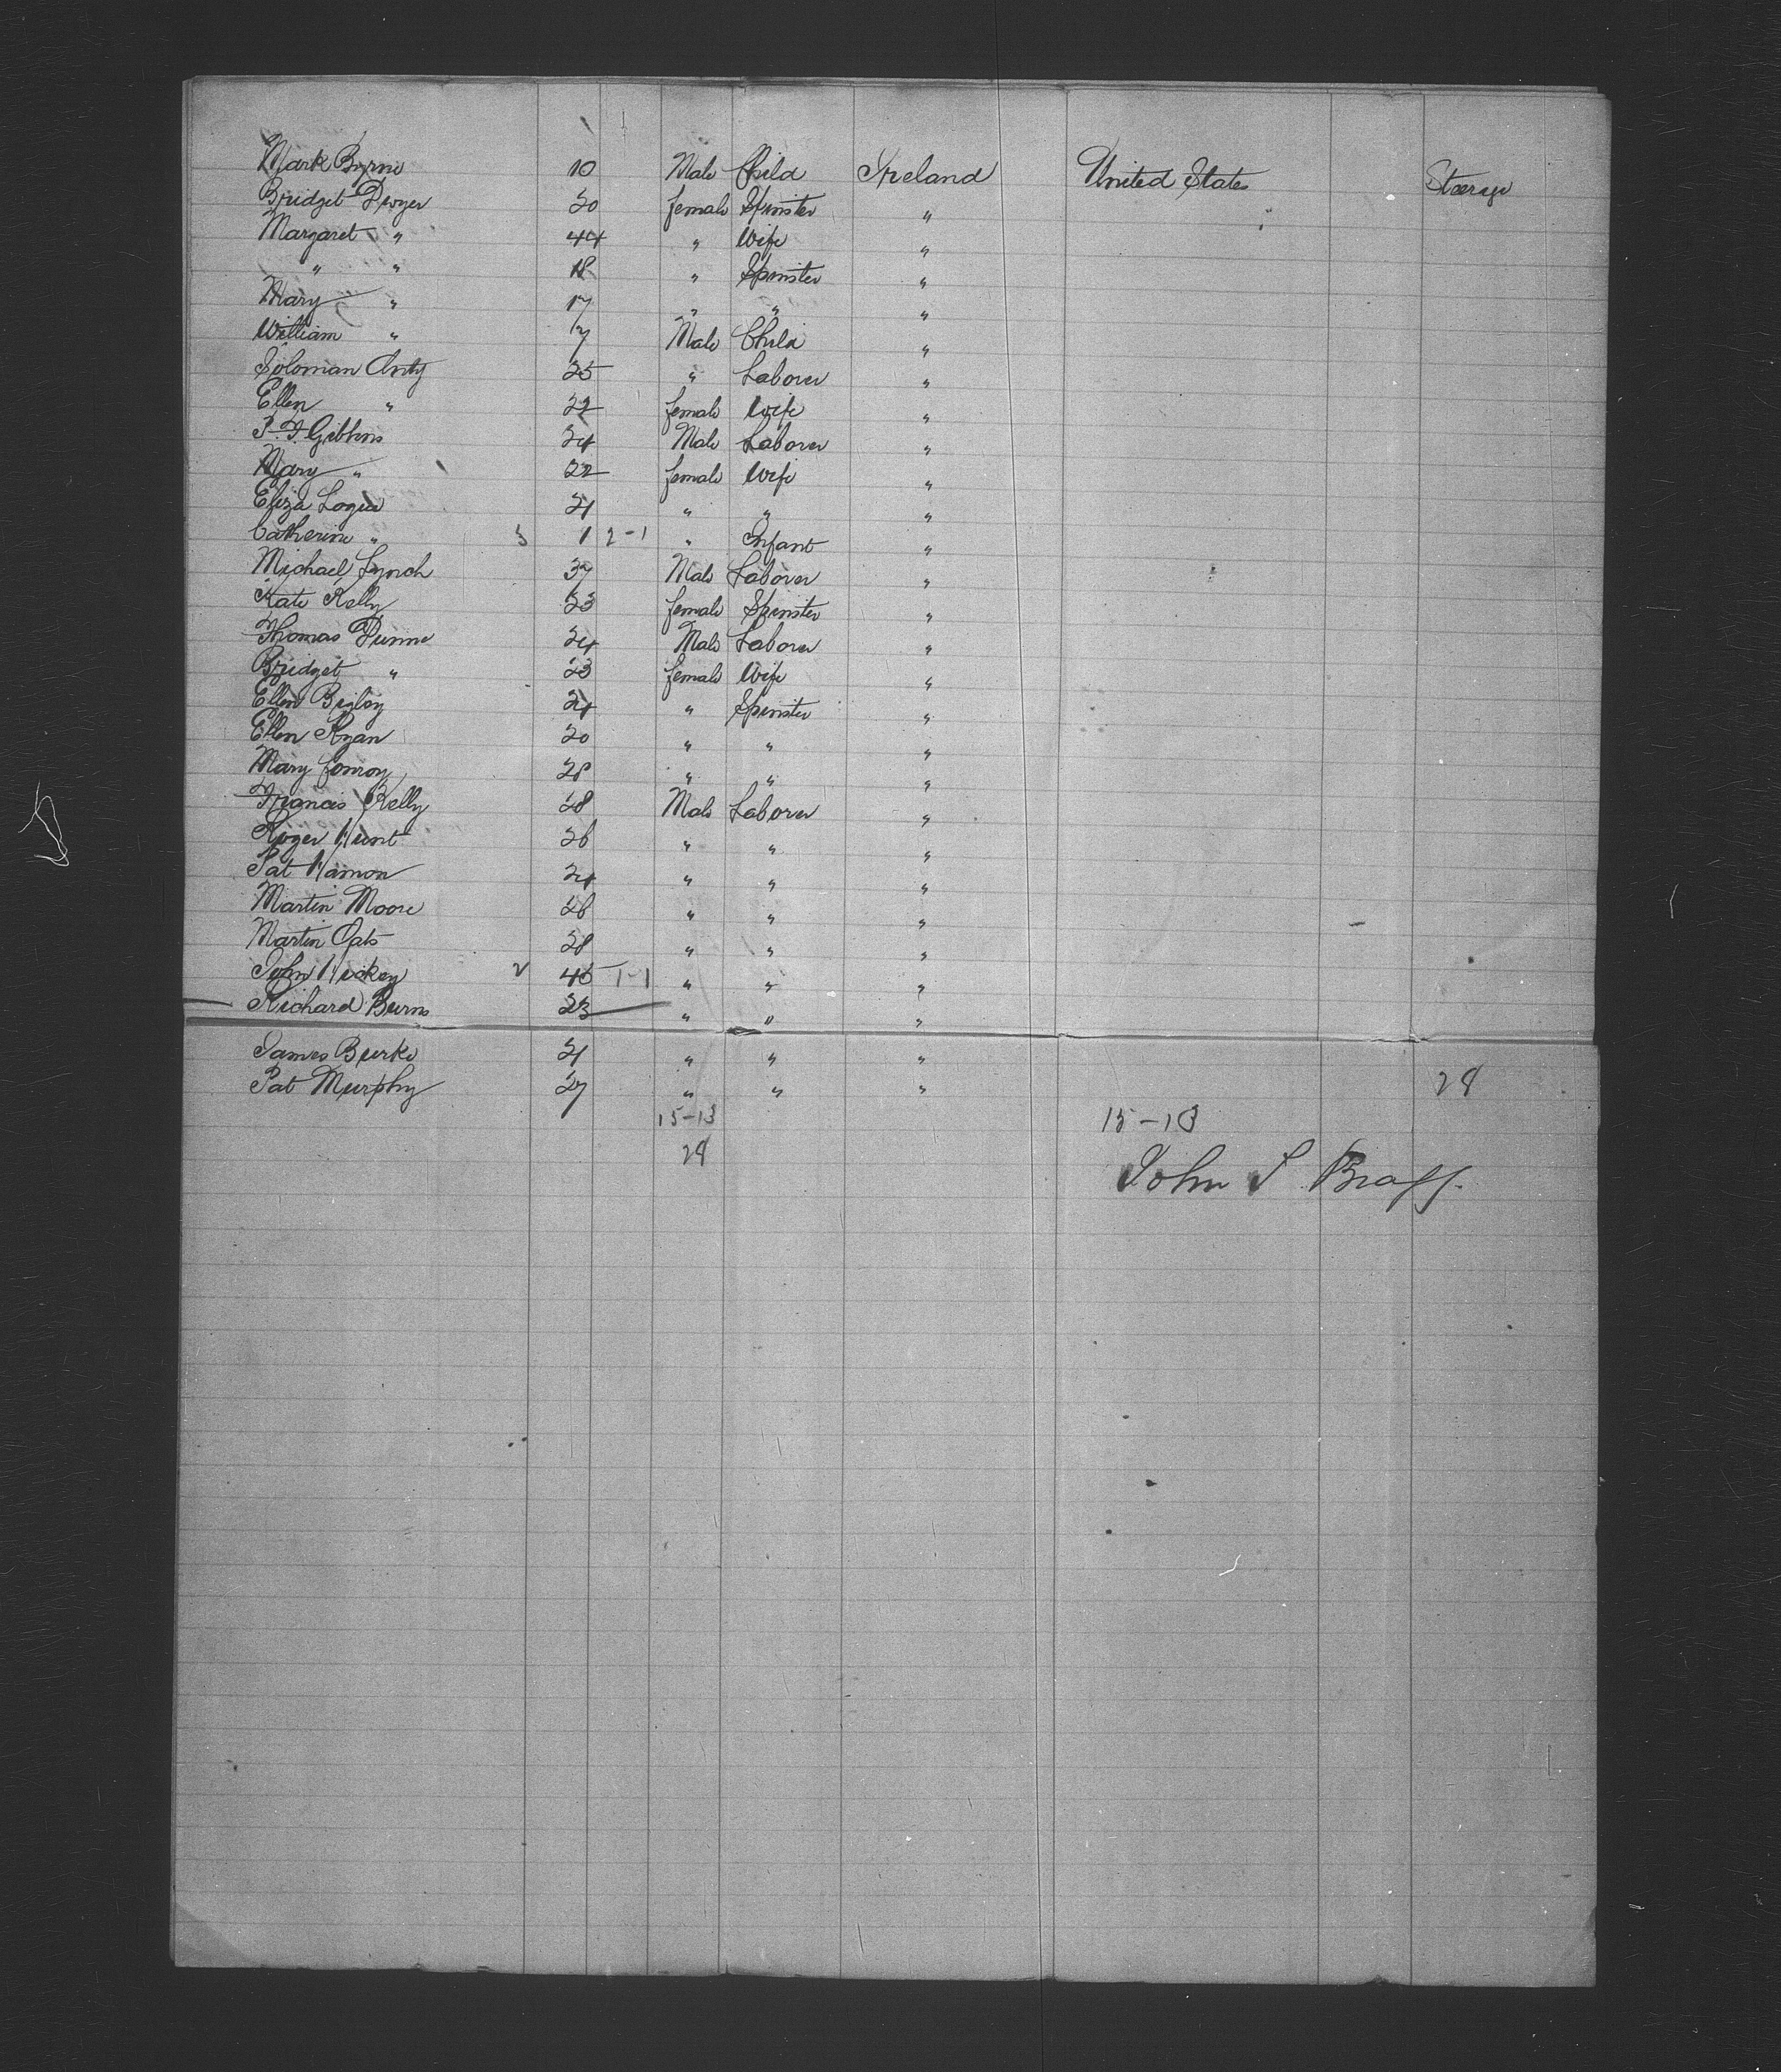 Mark Byrne 10 Male Child Ireland United States Steerage
Bridget Dwyer 20 female Spinster "
Margaret " 44 " Wife "
" " 18 " Spinster "
Mary " 17 " " "
William " 7 Male Child "
Soloman 25 " Laborer "
Ellen " 22 female Wife "
Gibbons 24 Male Laborer "
Mary " 22 female Wife "
Eliza Logue 21 " " "
Catherine " 3 1 2-1 " Infant "
Michael Lynch 37 Male Laborer "
Kate Kelly 23 female Spinster "
Thomas Dunne 24 Male Laborer "
Bridget " 23 female Wife "
Ellen Bigley 24 " Spinster "
Ellen Ryan 20 " " "
Mary Conroy 28 " " "
Francis Kelly 28 Male Laborer "
Roger Hunt 26 " " "
Pat Hamon 24 " " "
Martin Moore 26 " " "
Martin Oats 28 " " "
John Hickey 2 45 1-1 " " "
Richard Burns 23 " " "
James Burke 21 " " "
Pat Murphy 27 " " " 28
15-13 15-13
28
John S Bragg.